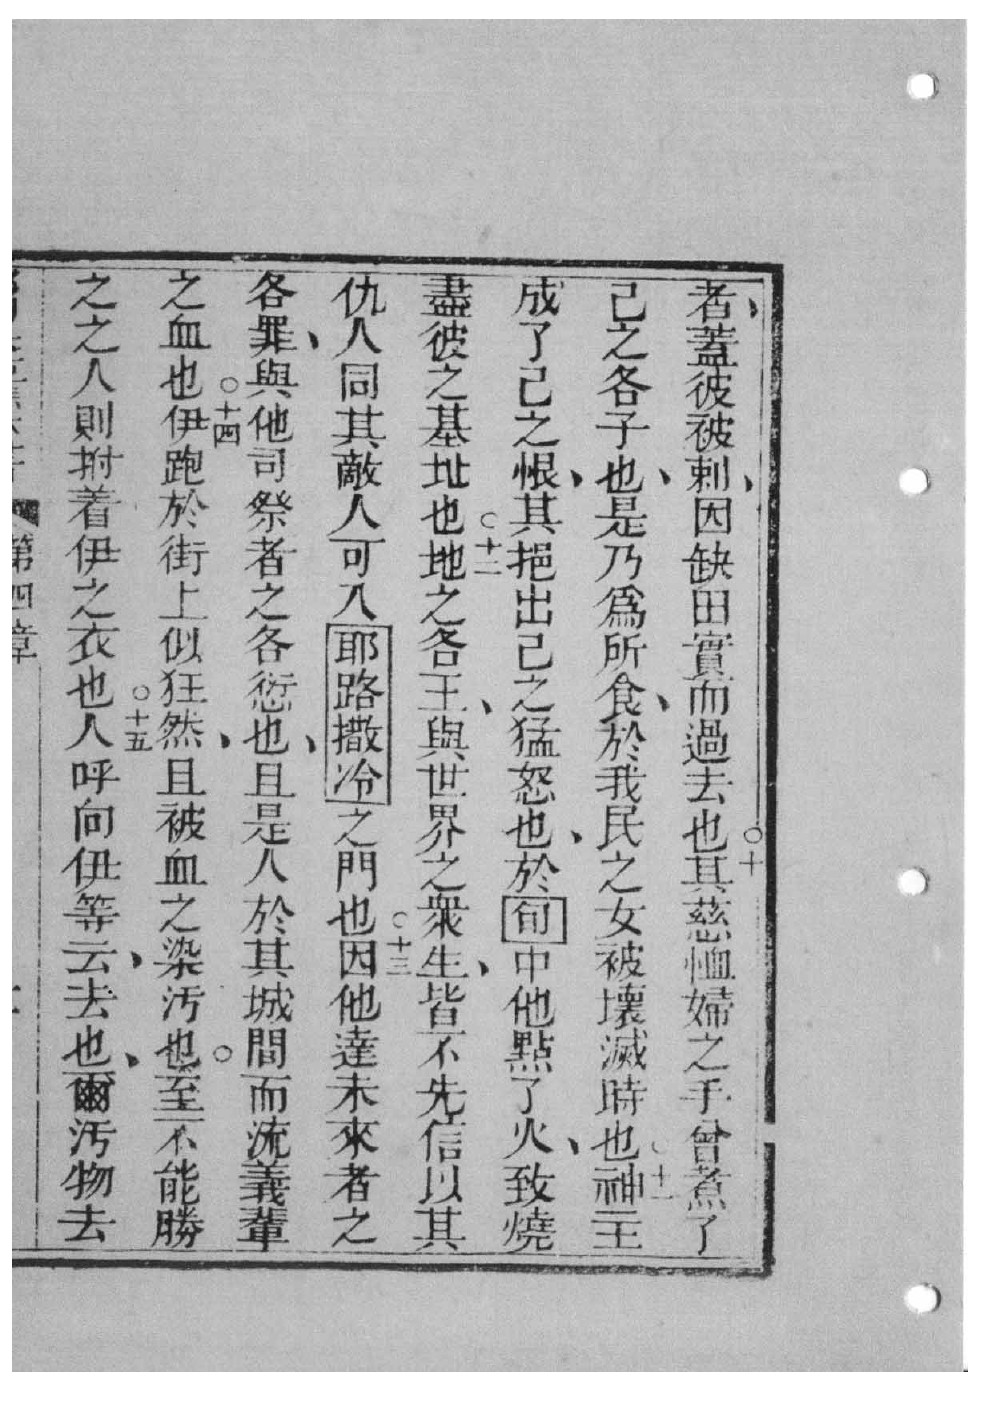 者、蓋彼被刺、因缺田實而過去也○十其慈恤婦之手曾煮了
己之各子也、是乃爲所食、於我民之女被壞滅時也○十一神主
成了己之恨、其挹出己之猛怒也、於旬中他點了火、致燒
盡彼之基址也○十二地之各王、與世界之衆生、皆不先信以其
仇人同其敵人可入耶路撒冷之門也○十三因他達未來者之
各罪、與他司祭者之各愆也、且是人於其城間而流義輩
之血也○十四伊跑於街上似狂然、且被血之染汚也○至不能勝
之之人則拊着伊之衣也○十五人呼向伊等云、去也、爾汚物去
第四章